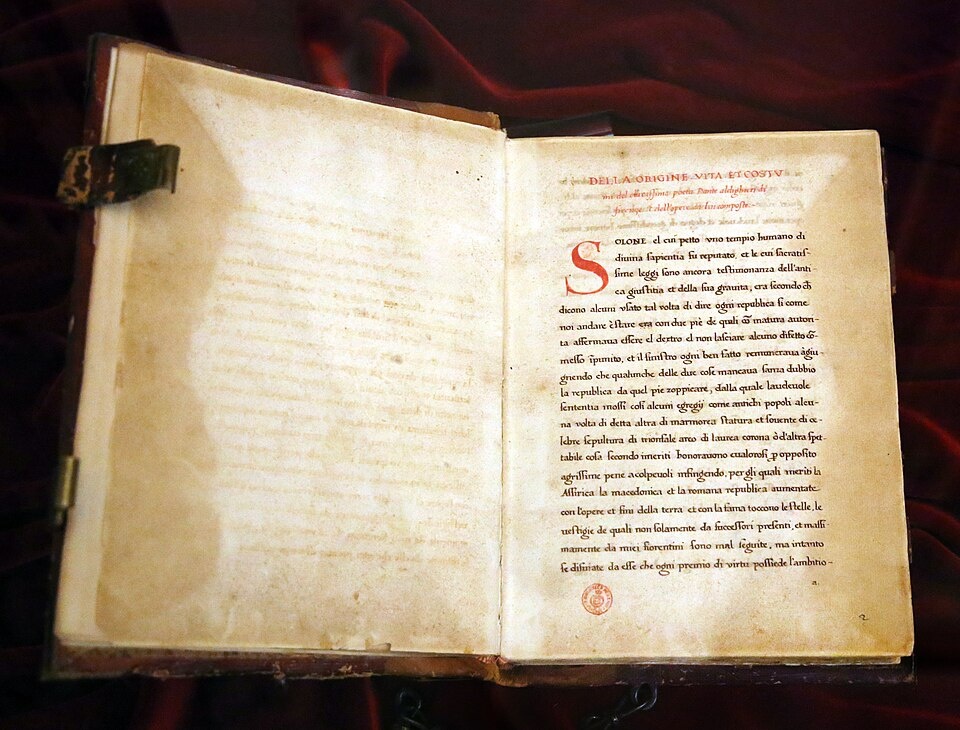 DELLA ORIGINE VITA ET COSTV
mi del clarissimo poeta Dante aldighieri di
firenze et dell'opere da lui composte.
SOLONE el cui petto vno tempio humano di
diuina sapientia fu reputato, et le cui sacratis-
sime leggi sono ancora testimonanza dell'anti-
ca giustitia et della sua grauita, era secondo ch
dicono alcuni vsato tal volta di dire ogni republica si come
noi andare e stare con due piè de quali cō matura autori-
ta affermaua essere el dextro el non lasciare alcuno difetto cō-
messo īpunito, et il sinistro ogni ben fatto remuneraua agiu-
gnendo che qualunche delle due cose mancaua sanza dubbio
la republica da quel pie zoppicare, dalla quale laudeuole
sententia mossi cosi alcuni egregij come antichi popoli alcu-
na volta di detta altra di marmorea statura et souente di ce-
lebre sepultura di trionfale arco di laurea corona o d'altra spet-
tabile cosa secondo imeriti honorauono eualorosi, p opposito
agrissime pene acolpeuoli infingendo, per gli quali meriti la
Assirica la macedonica et la romana republica aumentate
con l'opere et fini della terra et con la fama toccono le stelle, le
uestigie de quali non solamente da successori presenti, et massi-
mamente da miei fiorentini sono mal seguite, ma intanto
se disuiate da esse che ogni premio di virtu possiede l'ambitio-
a.
2